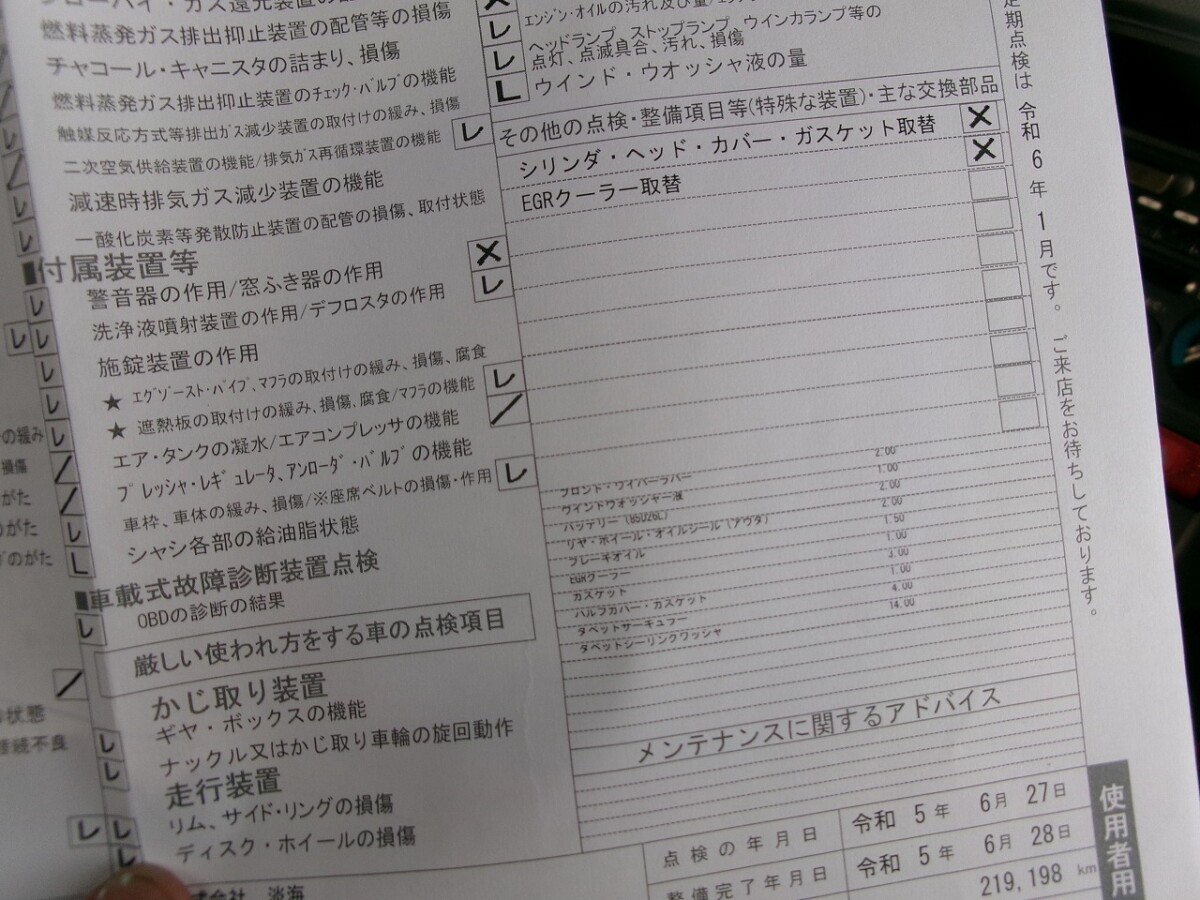 燃料蒸発ガス排出抑止装置の配管等の損傷
チャコール・キャニスタの詰まり、損傷
燃料蒸発ガス排出抑止装置のチェック・バルブの機能
触媒反応方式等排出ガス減少装置の取付けの緩み、損傷
二次空気供給装置の機能/排気ガス再循環装置の機能
減速時排気ガス減少装置の機能
一酸化炭素等発散防止装置の配管の損傷、取付状態
付属装置等
警音器の作用/窓ふき器の作用
洗浄液噴射装置の作用/デフロスタの作用
施錠装置の作用
★ エグゾースト・パイプ、マフラの取付けの緩み、損傷、腐食
★ 遮熱板の取付けの緩み、損傷、腐食/マフラの機能
エア・タンクの凝水/エアコンプレッサの機能
プレッシャ・レギュレータ、アンローダ・バルブの機能
車枠、車体の緩み、損傷/※座席ベルトの損傷・作用
シャシ各部の給油脂状態
車載式故障診断装置点検
OBDの診断の結果
厳しい使われ方をする車の点検項目
かじ取り装置
ギヤ・ボックスの機能
ナックル又はかじ取り車輪の旋回動作
走行装置
リム、サイド・リングの損傷
ディスク・ホイールの損傷
淡海
の緩み
損傷
がた
のがた
グのがた
状態
接続不良
エンジン・オイルの汚れ及び量/
ヘッドランプ、ストップランプ、ウインカランプ等の
点灯、点滅具合、汚れ、損傷
ウインド・ウオッシャ液の量
その他の点検・整備項目等(特殊な装置)・主な交換部品
シリンダ・ヘッド・カバー・ガスケット取替
EGRクーラー取替
フロント・ワイパーラバー 2.00
ウインドウォッシャー液 1.00
バッテリー（85D26L） 2.00
リヤ・ホイール・オイルシール（アウタ） 2.00
ブレーキオイル 1.50
EGRクーラー 1.00
ガスケット 3.00
バルブカバー・ガスケット 1.00
タペットサーキュラー 4.00
タペットシーリングワッシャ 14.00
メンテナンスに関するアドバイス
点検の年月日 令和 5年 6月 27日
整備完了年月日 令和 5年 6月 28日
219,198 km
定期点検は 令和 6 年 1 月です。 ご来店をお待ちしております。
使用者用